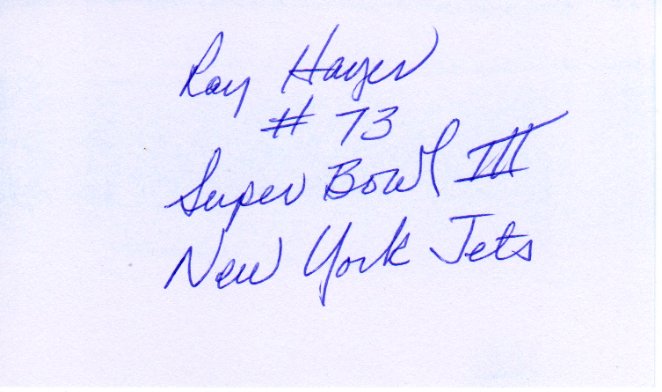 Ray Hayes
# 73
Super Bowl III
New York Jets